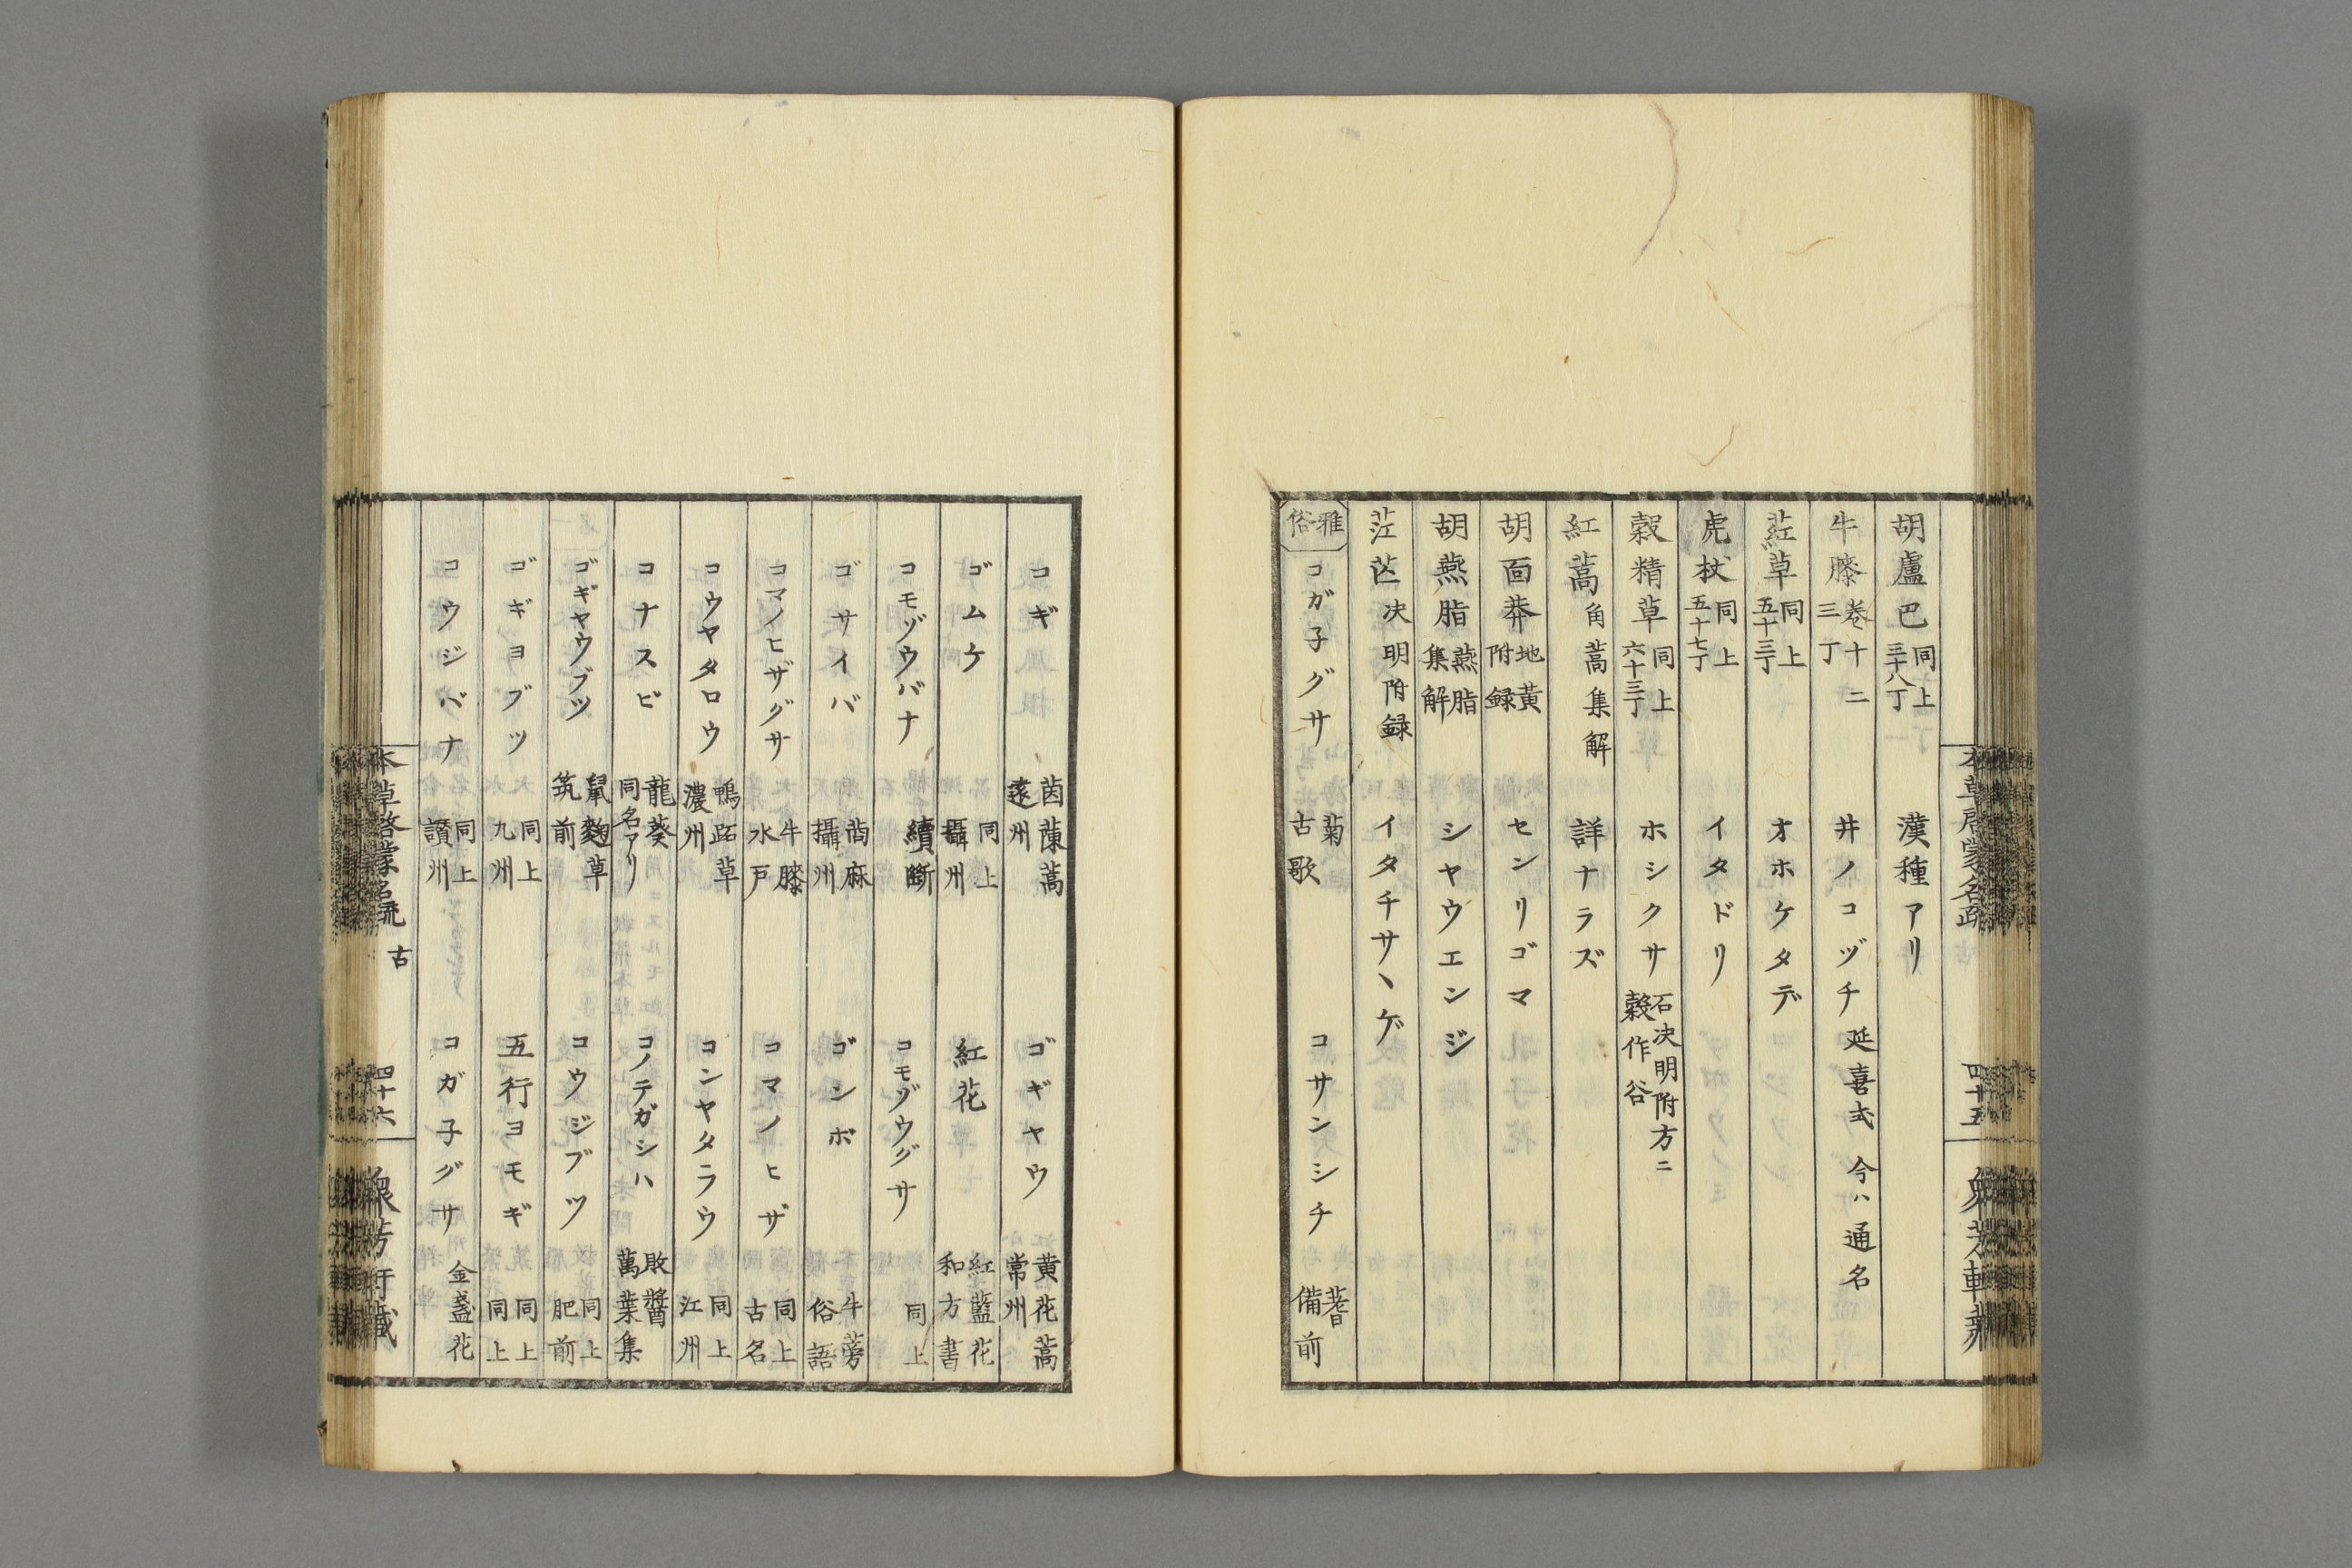 胡盧巴 同上三十八丁 漢種アリ
牛膝 卷十二三丁 井ノコヅチ 延喜式 今ハ通名
葒草 同上五十三丁 オホケタデ
虎杖 同上五十七丁 イタドリ
穀精草 同上六十三丁 ホシクサ 石决明附方ニ穀作谷
紅蒿 角蒿集解 詳ナラズ
胡面莽 地黃附録 センリゴマ
胡燕脂 燕脂集解 シヤウエンジ
茳芒 决明附録 イタチサヽゲ
雅俗 コガ子グサ 菊古歌 コサンシチ 蓍備前
本草啓蒙名疏 四十五
コギ 茵蔯蒿遠州 ゴギヤウ 黄花蒿常州
ゴムケ 同上攝州 紅花 紅藍花和方書
コモゾウバナ 續斷 コモゾウグサ 同上
ゴサイバ 莔麻攝州 ゴンボ 牛蒡俗語
コマノヒザグサ 牛膝水戸 コマノヒザ 同上古名
コウヤタロウ 鴨跖草濃州 コンヤタラウ 同上江州
コナスビ 龍葵同名アリ コノテガシハ 敗醬萬葉集
ゴギヤウブツ 鼠麴草筑前 コウジブツ 同上肥前
ゴギヨブツ 同上九州 五行ヨモギ 同上同上
コウジバナ 同上讃州 コガ子グサ 金盞花
本草啓蒙名疏 古 四十六 衆芳軒藏